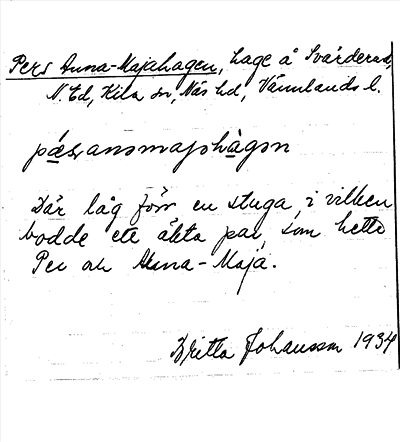 Pers Anna-Majahagen, hage å Svärderud,
N. Ed, Kila sn, Näs hd, Värmlands l.
pæs, ansmajshàgen
Där låg förr en stuga, i vilken
bodde ett äkta par, som hette
Per och Anna-Maja.
Britta Johansson 1934